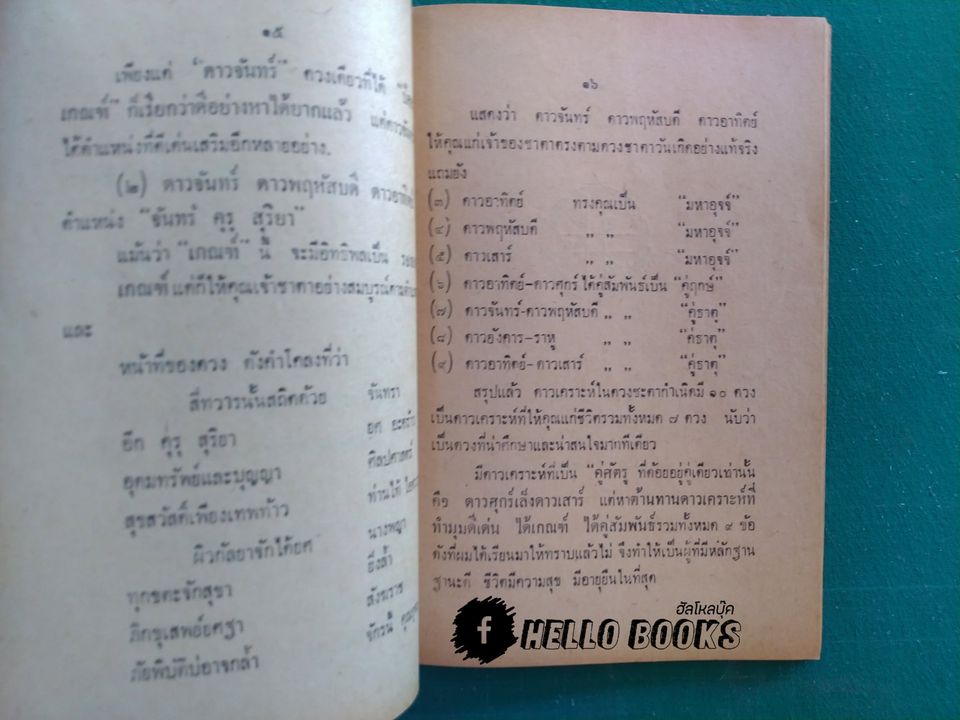 ๑๕
เพียงแค่ "ดาวจันทร์" ดวงเดียวที่ได้
เกณฑ์" ก็เรียกว่าดีอย่างหาได้ยากแล้ว
ได้ตำแหน่งที่ดีเด่นเสริมอีกหลายอย่าง.
(๒) ดาวจันทร์ ดาวพฤหัสบดี
ตำแหน่ง "จันทร์ คุรุ สุริยา"
แม้นว่า "เกณฑ์" นี้ จะมีอิทธิพลเป็น
เกณฑ์ แต่ก็ให้คุณเจ้าชาตาอย่างสมบูรณ์
และ
หน้าที่ของดวง ดังคำโคลงที่ว่า
สี่ทวารนั้นสถิตด้วย จันทรา
อีก คุ่รุ สุริยา ยศ
อุดมทรัพย์และบุญญา ศิลปศาสตร์
สุขสวัสดิ์เพียงเทพท้าว ท่านไท้
ผิวกัลยาจักได้ยศ นางพญา
ทุกขตะจักสุขา ยิ่งล้ำ
ภิกขุเสพย์ยศฐา สังฆราช
ภัยพิบัติบ่อาจกล้ำ จักรนี
๑๖
แสดงว่า ดาวจันทร์ ดาวพฤหัสบดี ดาวอาทิตย์
ให้คุณแก่เจ้าของชาตาตรงตามดวงชาตาวันเกิดอย่างแท้จริง
แถมยัง
(๓) ดาวอาทิตย์ ทรงคุณเป็น "มหาอุจจ์"
(๔) ดาวพฤหัสบดี ,, ,, "มหาอุจจ์"
(๕) ดาวเสาร์ ,, ,, "มหาอุจจ์"
(๖) ดาวอาทิตย์–ดาวศุกร์ ได้คู่สัมพันธ์เป็น "คู่ฤกษ์"
(๗) ดาวจันทร์-ดาวพฤหัสบดี ,, ,, "คู่ธาตุ"
(๘) ดาวอังคาร–ราหู ,, ,, "คู่ธาตุ"
(๙) ดาวอาทิตย์–ดาวเสาร์ ,, ,, "คู่ธาตุ"
สรุปแล้ว ดาวเคราะห์ในดวงชะตากำเนิดมี ๑๐ ดวง
เป็นดาวเคราะห์ที่ให้คุณแก่ชีวิตรวมทั้งหมด ๗ ดวง นับว่า
เป็นดวงที่น่าศึกษาและน่าสนใจมากทีเดียว
มีดาวเคราะห์ที่เป็น "คู่ศัตรู ที่ด้อยอยู่คู่เดียวเท่านั้น
คือ ดาวศุกร์เล็งดาวเสาร์ แต่หาต้านทานดาวเคราะห์ที่
ทำมุมดีเด่น ได้เกณฑ์ ได้คู่สัมพันธ์รวมทั้งหมด ๙ ข้อ
ดังที่ผมได้เรียนมาให้ทราบแล้วไม่ จึงทำให้เป็นผู้ที่มีหลักฐาน
ฐานะดี ชีวิตมีความสุข มีอายุยืนในที่สุด
ฮัลโหลบุ๊ค
f HELLO BOOKS